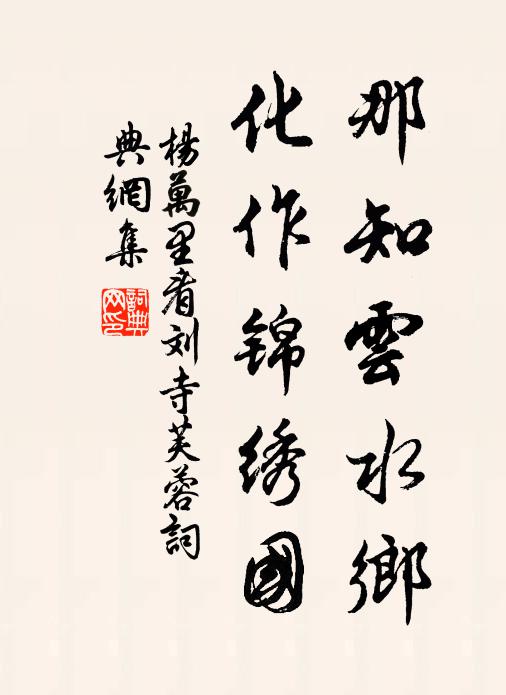 那知雲水鄉
化作锦绣國
楊萬里看刘寺芙蓉詞
典網集
詞典
网印